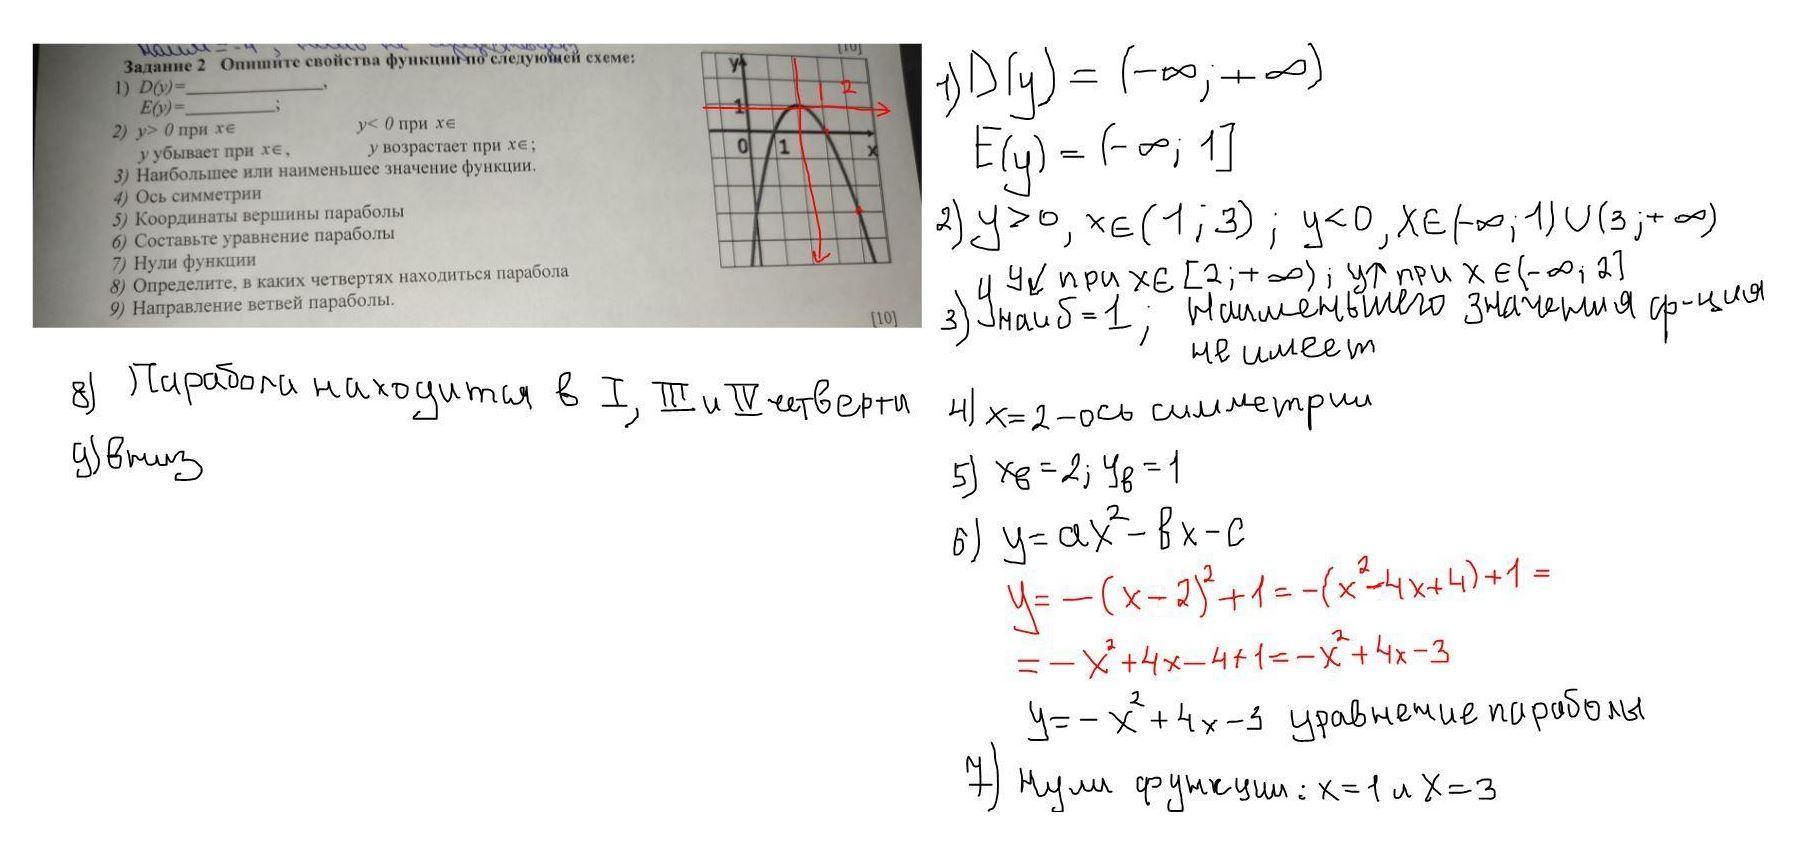 Задание 2 Опишите свойства функции по следующей схеме:
[10]
1) D(y)=____________,
E(y)=__________;
2) y> 0 при x∈ y< 0 при x∈
y убывает при x∈, y возрастает при x∈;
3) Наибольшее или наименьшее значение функции.
4) Ось симметрии
5) Координаты вершины параболы
6) Составьте уравнение параболы
7) Нули функции
8) Определите, в каких четвертях находиться парабола
9) Направление ветвей параболы.
[10]
y
1 2
1
0 1 x
1) D(y) = (-∞; +∞)
E(y) = (-∞; 1]
2) y>0, x∈(1; 3); y<0, x∈(-∞; 1)∪(3; +∞)
y↙ при x∈[2; +∞); y↗ при x∈(-∞; 2]
3) y наиб = 1; наименьшего значения ф-ция
не имеет
4) x=2 – ось симметрии
5) xв = 2; yв = 1
6) y = ax² - вx - c
y = -(x-2)² + 1 = -(x² - 4x + 4) + 1 =
= - x² + 4x - 4 + 1 = - x² + 4x - 3
y = - x² + 4x - 3 уравнение параболы
7) Нули функции: x=1 и x=3
8) Парабола находится в I, III и IV четверти
9) вниз